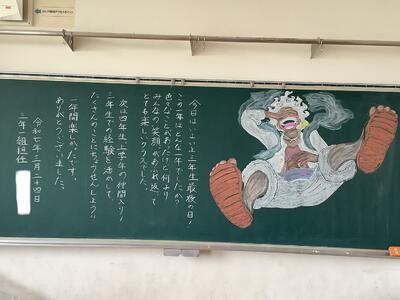 今日はいよいよ三年生最後の日！
この一年はどんな一年でしたか？
色々なことがあったけど何より
みんなの笑顔があふれ返って
とても楽しいクラスでした。
次は四年生、上学年の仲間入り！
三年生での経験を活かして
たくさんのことにちょうせんしよう！
一年間楽しかったです。
ありがとうございました。
令和七年三月二十四日
三年一組担任